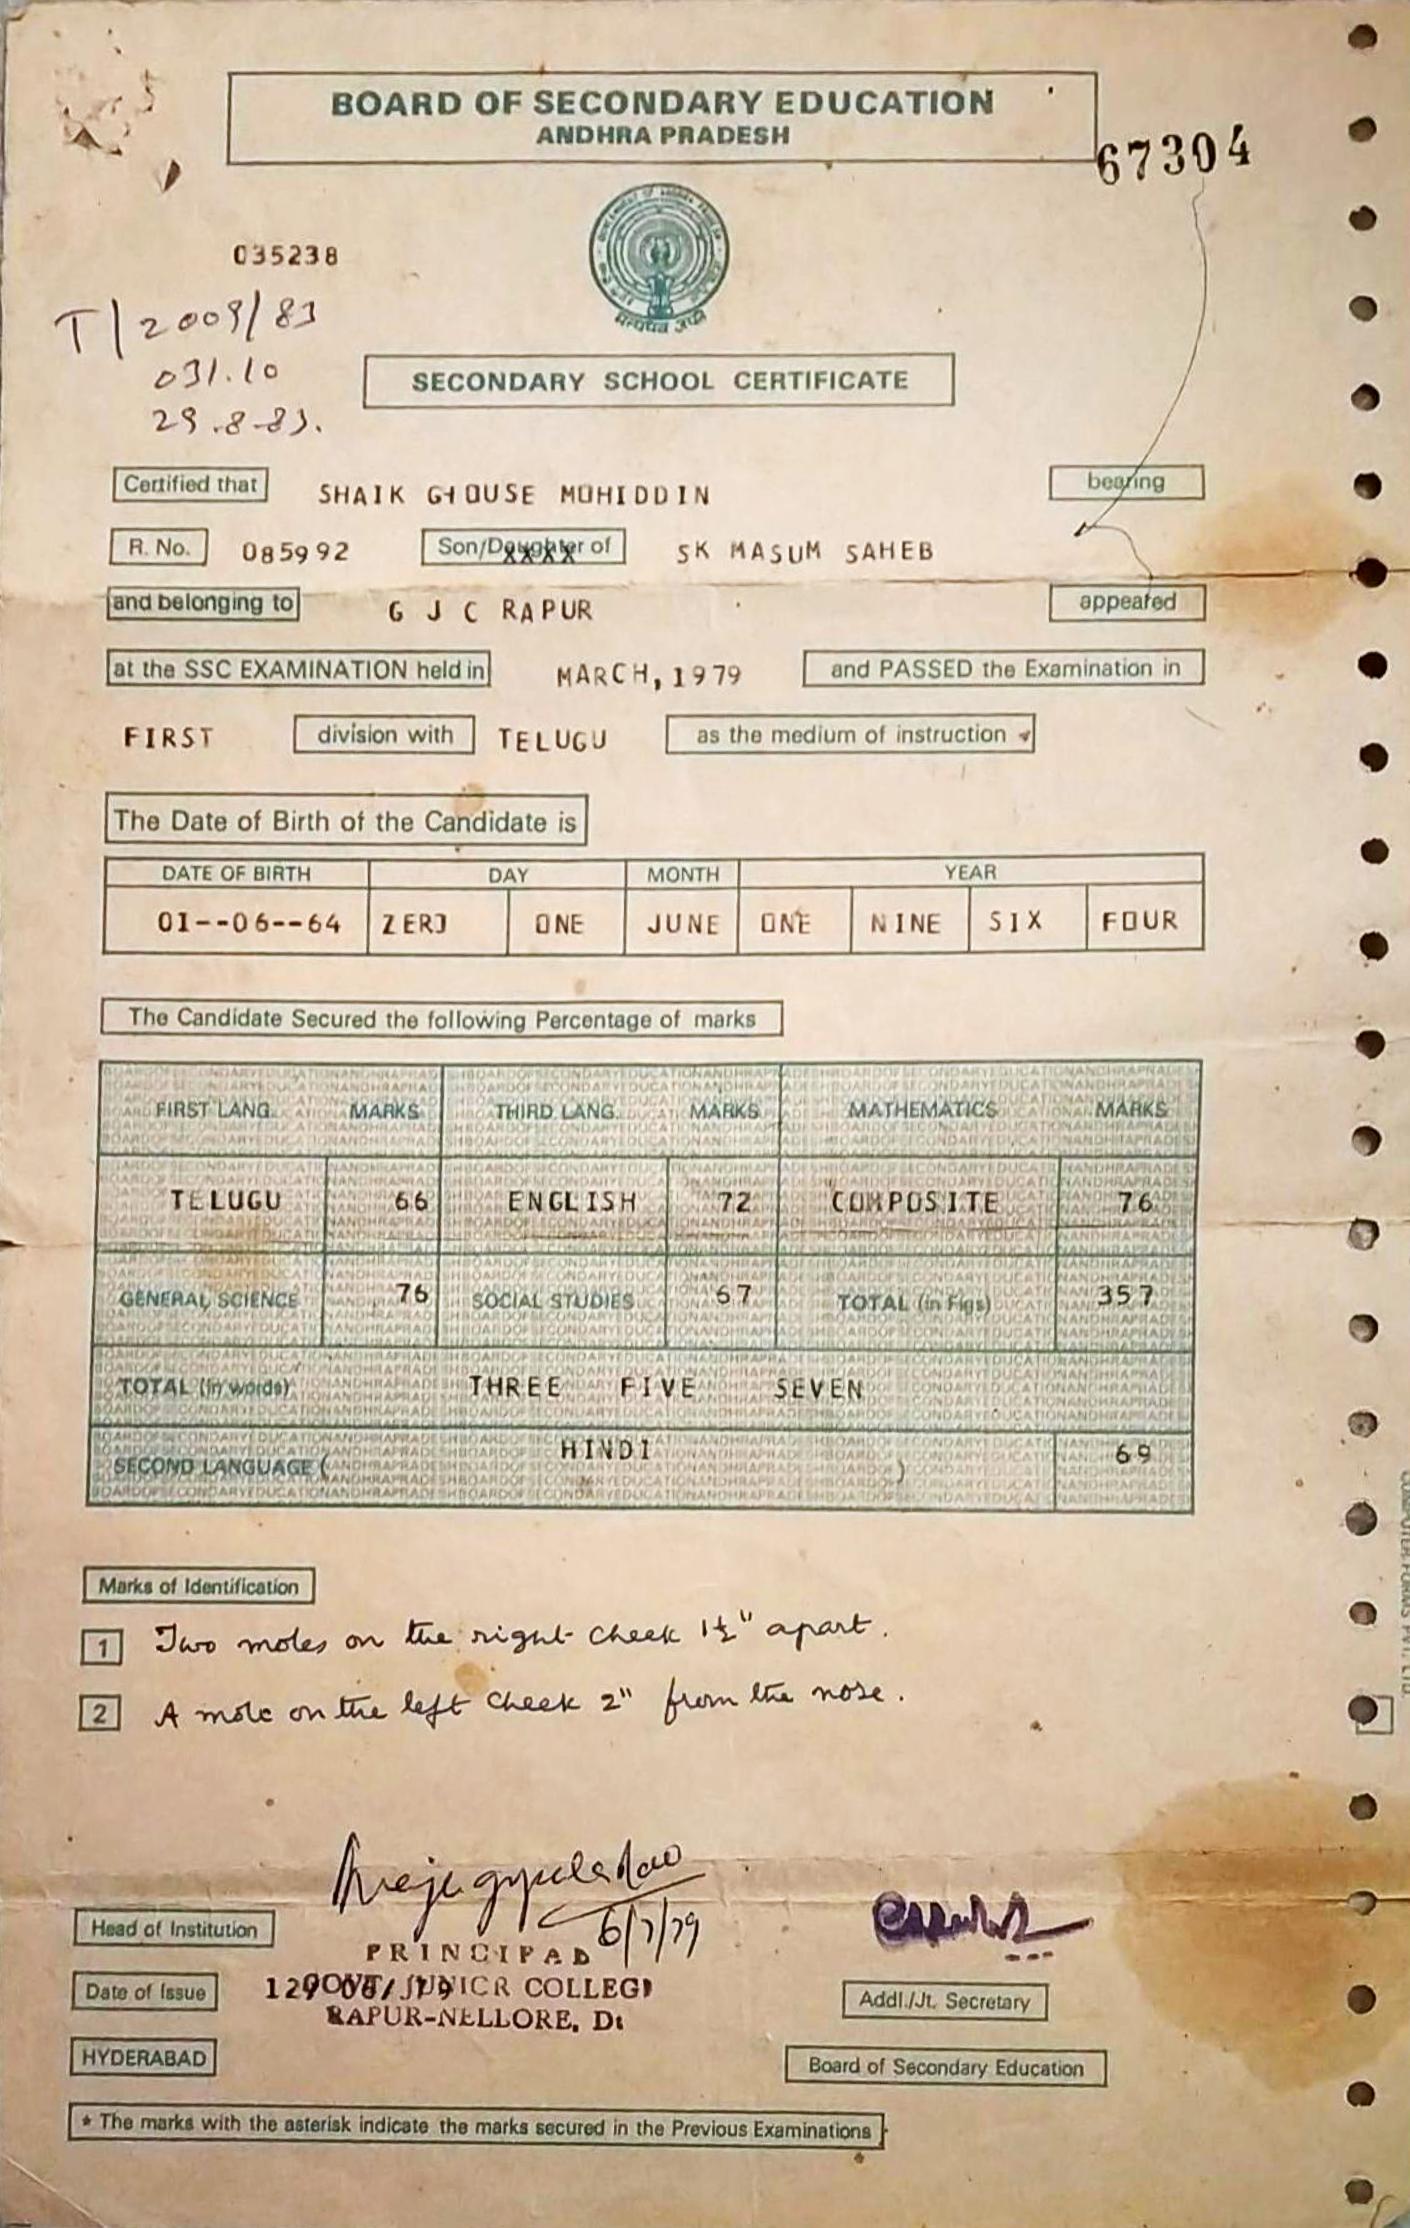 BOARD OF SECONDARY EDUCATION
ANDHRA PRADESH
67304
035238
T/2009/83
031.10
29.8.83.
सत्यमेव जयते
SECONDARY SCHOOL CERTIFICATE
Certified that SHAIK GHOUSE MOHIDDIN bearing
R. No. 085992 Son/Daughter of SK MASUM SAHEB
and belonging to G J C RAPUR appeared
at the SSC EXAMINATION held in MARCH, 1979 and PASSED the Examination in
FIRST division with TELUGU as the medium of instruction
The Date of Birth of the Candidate is
DATE OF BIRTH DAY MONTH YEAR
01--06--64 ZERO ONE JUNE ONE NINE SIX FOUR
The Candidate Secured the following Percentage of marks
FIRST LANG. MARKS THIRD LANG. MARKS MATHEMATICS MARKS
TELUGU 66 ENGLISH 72 COMPOSITE 76
GENERAL SCIENCE 76 SOCIAL STUDIES 67 TOTAL (in Figs) 357
TOTAL (in words) THREE FIVE SEVEN
SECOND LANGUAGE ( HINDI ) 69
Marks of Identification
1 Two moles on the right cheek 1½" apart.
2 A mole on the left cheek 2" from the nose.
6/7/79
Head of Institution
PRINCIPAL
Date of Issue GOVT. JUNIOR COLLEGE
RAPUR-NELLORE, Dt
Addl./Jt. Secretary
HYDERABAD
Board of Secondary Education
* The marks with the asterisk indicate the marks secured in the Previous Examinations
COMPUTER FORMS PVT. LTD.